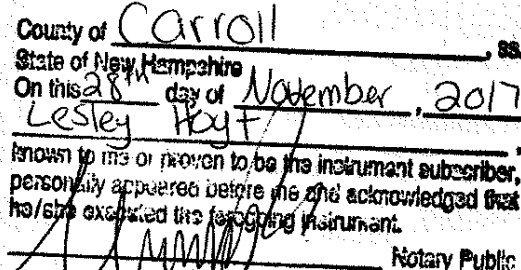 County of Carroll, ss.
State of New Hampshire
On this 28th day of November, 2017
Lesley Hoyt,
known to me or proven to be the instrument subscriber,
personally appeared before me and acknowledged that
he/she executed the foregoing instrument.
Notary Public